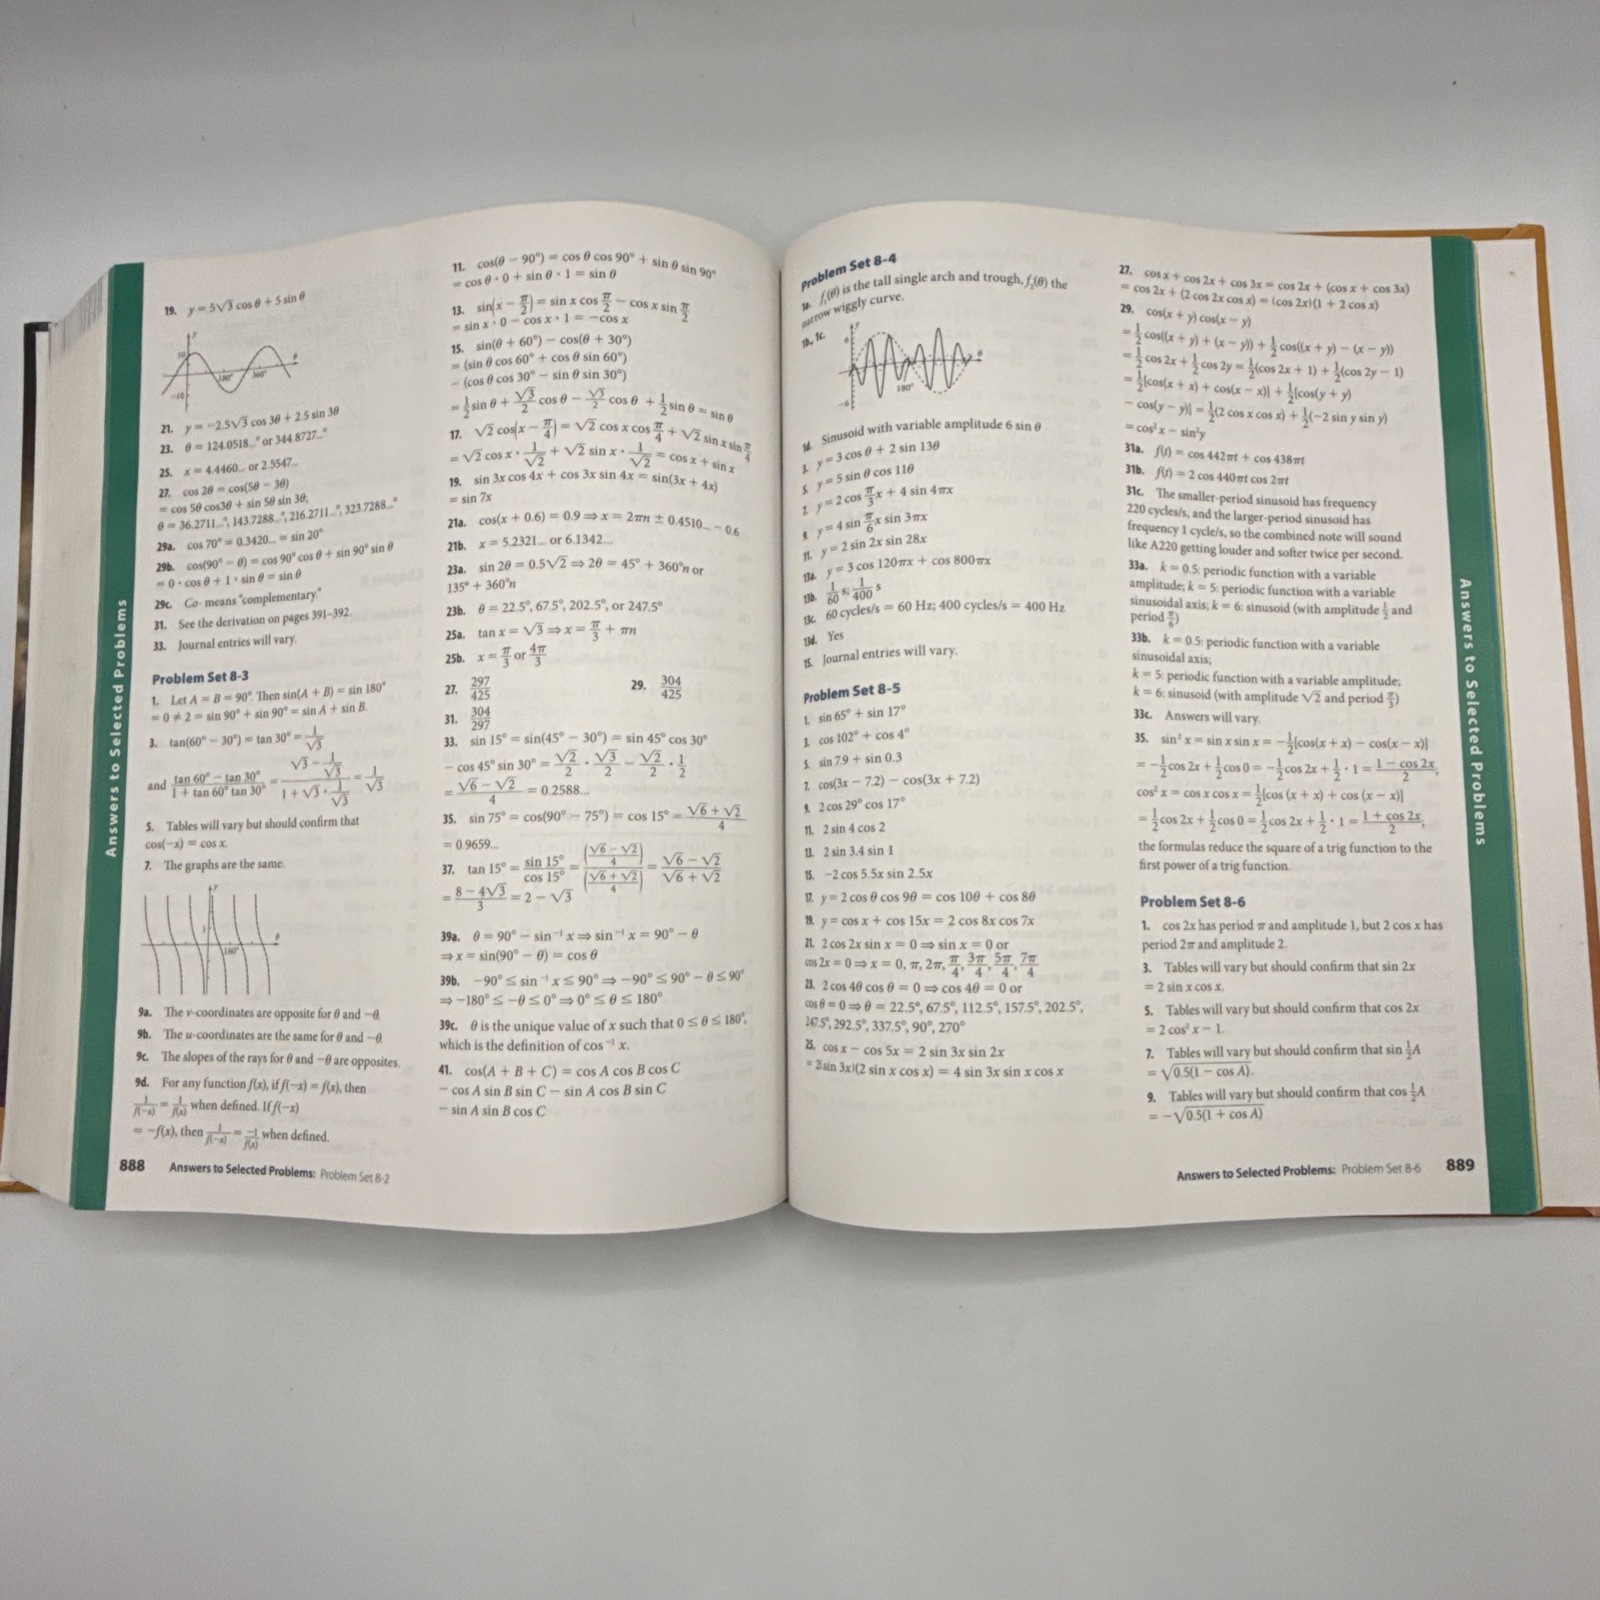 Answers to Selected Problems
19. y = 5√3 cos θ + 5 sin θ
y
10
180° 360° θ
−10
21. y = −2.5√3 cos 3θ + 2.5 sin 3θ
23. θ = 124.0518...° or 344.8727...°
25. x = 4.4460... or 2.5547...
27. cos 2θ = cos(5θ − 3θ)
= cos 5θ cos3θ + sin 5θ sin 3θ;
θ = 36.2711...°, 143.7288...°, 216.2711...°, 323.7288...°
29a. cos 70° = 0.3420... = sin 20°
29b. cos(90° − θ) = cos 90° cos θ + sin 90° sin θ
= 0 · cos θ + 1 · sin θ = sin θ
29c. Co- means "complementary."
31. See the derivation on pages 391–392.
33. Journal entries will vary.
Problem Set 8-3
1. Let A = B = 90°. Then sin(A + B) = sin 180°
= 0 ≠ 2 = sin 90° + sin 90° = sin A + sin B.
3. tan(60° − 30°) = tan 30° = 1/√3
and (tan 60° − tan 30°)/(1 + tan 60° tan 30°) = (√3 − 1/√3)/(1 + √3 · 1/√3) = 1/√3
5. Tables will vary but should confirm that
cos(−x) = cos x.
7. The graphs are the same.
y
1
180° θ
9a. The v-coordinates are opposite for θ and −θ.
9b. The u-coordinates are the same for θ and −θ.
9c. The slopes of the rays for θ and −θ are opposites.
9d. For any function f(x), if f(−x) = f(x), then
1/f(−x) = 1/f(x) when defined. If f(−x)
= −f(x), then 1/f(−x) = −1/f(x) when defined.
888 Answers to Selected Problems: Problem Set 8-2
11. cos(θ − 90°) = cos θ cos 90° + sin θ sin 90°
= cos θ · 0 + sin θ · 1 = sin θ
13. sin(x − π/2) = sin x cos π/2 − cos x sin π/2
= sin x · 0 − cos x · 1 = −cos x
15. sin(θ + 60°) − cos(θ + 30°)
= (sin θ cos 60° + cos θ sin 60°)
− (cos θ cos 30° − sin θ sin 30°)
= 1/2 sin θ + √3/2 cos θ − √3/2 cos θ + 1/2 sin θ = sin θ
17. √2 cos(x − π/4) = √2 cos x cos π/4 + √2 sin x sin π/4
= √2 cos x · 1/√2 + √2 sin x · 1/√2 = cos x + sin x
19. sin 3x cos 4x + cos 3x sin 4x = sin(3x + 4x)
= sin 7x
21a. cos(x + 0.6) = 0.9 ⇒ x = 2πn ± 0.4510... − 0.6
21b. x = 5.2321... or 6.1342...
23a. sin 2θ = 0.5√2 ⇒ 2θ = 45° + 360°n or
135° + 360°n
23b. θ = 22.5°, 67.5°, 202.5°, or 247.5°
25a. tan x = √3 ⇒ x = π/3 + πn
25b. x = π/3 or 4π/3
27. 297/425 29. 304/425
31. 304/297
33. sin 15° = sin(45° − 30°) = sin 45° cos 30°
− cos 45° sin 30° = √2/2 · √3/2 − √2/2 · 1/2
= (√6 − √2)/4 = 0.2588...
35. sin 75° = cos(90° − 75°) = cos 15° = (√6 + √2)/4
= 0.9659...
37. tan 15° = sin 15°/cos 15° = ((√6 − √2)/4)/((√6 + √2)/4) = (√6 − √2)/(√6 + √2)
= (8 − 4√3)/3 = 2 − √3
39a. θ = 90° − sin⁻¹ x ⇒ sin⁻¹ x = 90° − θ
⇒ x = sin(90° − θ) = cos θ
39b. −90° ≤ sin⁻¹ x ≤ 90° ⇒ −90° ≤ 90° − θ ≤ 90°
⇒ −180° ≤ −θ ≤ 0° ⇒ 0° ≤ θ ≤ 180°
39c. θ is the unique value of x such that 0 ≤ θ ≤ 180°,
which is the definition of cos⁻¹ x.
41. cos(A + B + C) = cos A cos B cos C
− cos A sin B sin C − sin A cos B sin C
− sin A sin B cos C
Problem Set 8-4
1a. f₁(θ) is the tall single arch and trough, f₂(θ) the
narrow wiggly curve.
1b, 1c.
y
6
180° θ
−6
1d. Sinusoid with variable amplitude 6 sin θ
3. y = 3 cos θ + 2 sin 13θ
5. y = 5 sin θ cos 11θ
7. y = 2 cos π/3 x + 4 sin 4πx
9. y = 4 sin π/6 x sin 3πx
11. y = 2 sin 2x sin 28x
13a. y = 3 cos 120πx + cos 800πx
13b. 1/60 s; 1/400 s
13c. 60 cycles/s = 60 Hz; 400 cycles/s = 400 Hz
13d. Yes
15. Journal entries will vary.
Problem Set 8-5
1. sin 65° + sin 17°
3. cos 102° + cos 4°
5. sin 7.9 + sin 0.3
7. cos(3x − 7.2) − cos(3x + 7.2)
9. 2 cos 29° cos 17°
11. 2 sin 4 cos 2
13. 2 sin 3.4 sin 1
15. −2 cos 5.5x sin 2.5x
17. y = 2 cos θ cos 9θ = cos 10θ + cos 8θ
19. y = cos x + cos 15x = 2 cos 8x cos 7x
21. 2 cos 2x sin x = 0 ⇒ sin x = 0 or
cos 2x = 0 ⇒ x = 0, π, 2π, π/4, 3π/4, 5π/4, 7π/4
23. 2 cos 4θ cos θ = 0 ⇒ cos 4θ = 0 or
cos θ = 0 ⇒ θ = 22.5°, 67.5°, 112.5°, 157.5°, 202.5°,
247.5°, 292.5°, 337.5°, 90°, 270°
25. cos x − cos 5x = 2 sin 3x sin 2x
= 2(sin 3x)(2 sin x cos x) = 4 sin 3x sin x cos x
27. cos x + cos 2x + cos 3x = cos 2x + (cos x + cos 3x)
= cos 2x + (2 cos 2x cos x) = (cos 2x)(1 + 2 cos x)
29. cos(x + y) cos(x − y)
= 1/2 cos((x + y) + (x − y)) + 1/2 cos((x + y) − (x − y))
= 1/2 cos 2x + 1/2 cos 2y = 1/2(cos 2x + 1) + 1/2(cos 2y − 1)
= 1/2[cos(x + x) + cos(x − x)] + 1/2[cos(y + y)
− cos(y − y)] = 1/2(2 cos x cos x) + 1/2(−2 sin y sin y)
= cos²x − sin²y
31a. f(t) = cos 442πt + cos 438πt
31b. f(t) = 2 cos 440πt cos 2πt
31c. The smaller-period sinusoid has frequency
220 cycles/s, and the larger-period sinusoid has
frequency 1 cycle/s, so the combined note will sound
like A220 getting louder and softer twice per second.
33a. k = 0.5: periodic function with a variable
amplitude; k = 5: periodic function with a variable
sinusoidal axis; k = 6: sinusoid (with amplitude 1/2 and
period π/6)
33b. k = 0.5: periodic function with a variable
sinusoidal axis;
k = 5: periodic function with a variable amplitude;
k = 6: sinusoid (with amplitude √2 and period π/3)
33c. Answers will vary.
35. sin² x = sin x sin x = −1/2[cos(x + x) − cos(x − x)]
= −1/2 cos 2x + 1/2 cos 0 = −1/2 cos 2x + 1/2 · 1 = (1 − cos 2x)/2;
cos² x = cos x cos x = 1/2[cos (x + x) + cos (x − x)]
= 1/2 cos 2x + 1/2 cos 0 = 1/2 cos 2x + 1/2 · 1 = (1 + cos 2x)/2;
the formulas reduce the square of a trig function to the
first power of a trig function.
Problem Set 8-6
1. cos 2x has period π and amplitude 1, but 2 cos x has
period 2π and amplitude 2.
3. Tables will vary but should confirm that sin 2x
= 2 sin x cos x.
5. Tables will vary but should confirm that cos 2x
= 2 cos² x − 1.
7. Tables will vary but should confirm that sin 1/2 A
= √0.5(1 − cos A).
9. Tables will vary but should confirm that cos 1/2 A
= −√0.5(1 + cos A)
Answers to Selected Problems: Problem Set 8-6 889
Answers to Selected Problems